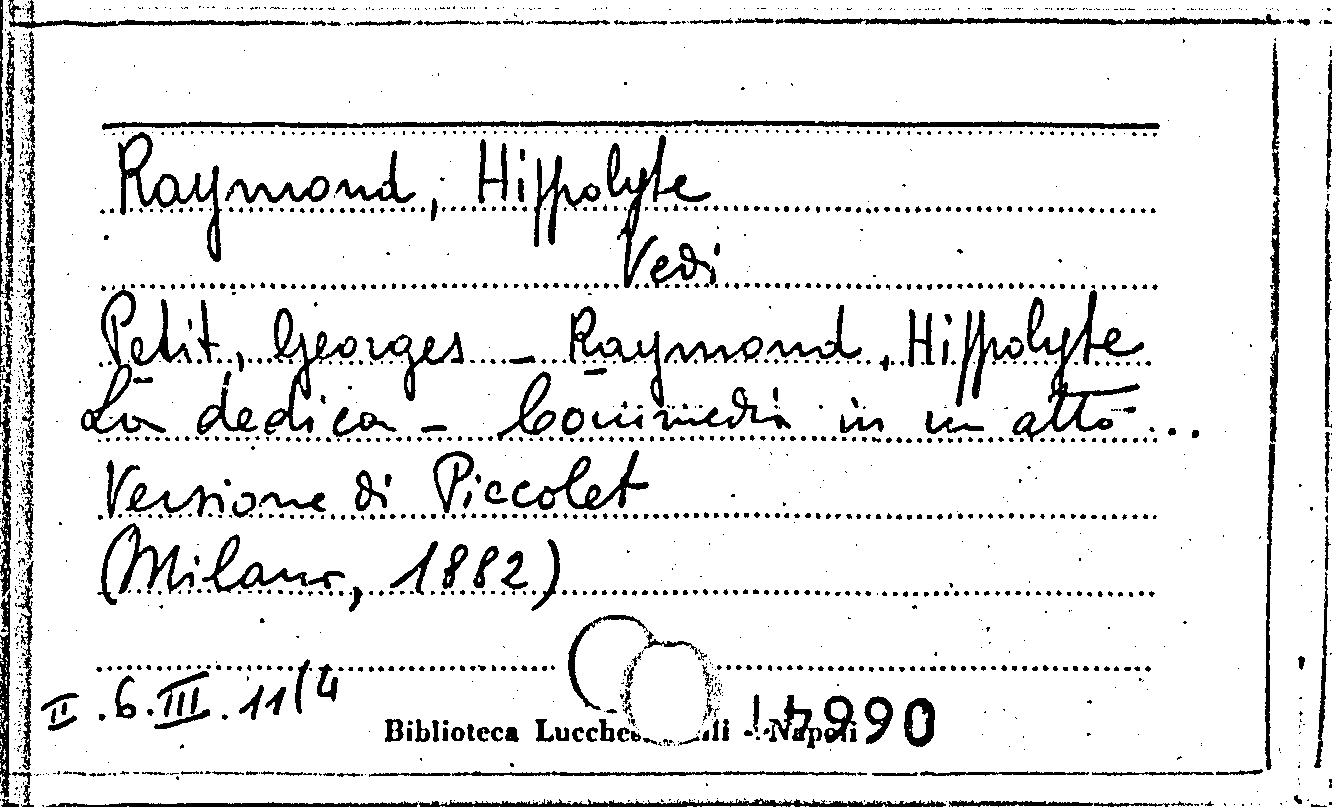 Raymond, Hippolyte
Vedi
Petit, Georges - Raymond, Hippolyte
La dedica - Commedia in un atto...
Versione di Piccolet
(Milano, 1882)
II.6.III.11/4
Biblioteca - Napoli